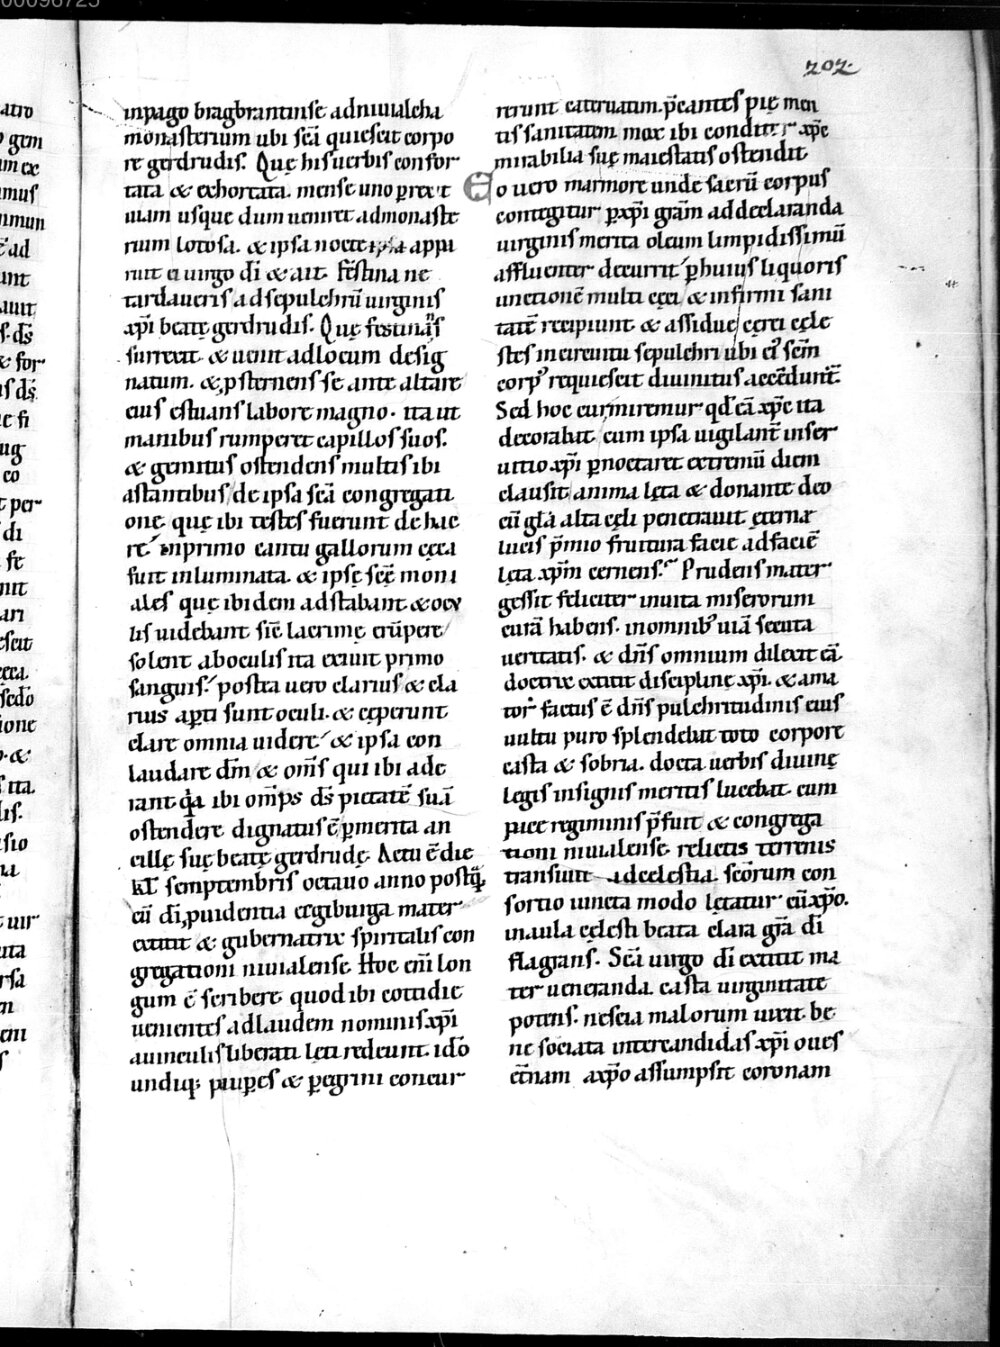 202.
inpago bragbrantinse adniuialcha
monasterium ubi sc̄a quiescit corpo
re gerdrudis. Quę hisuerbis confor
tata & exhortata. mense uno p̄rexit
uiam usque dum ueniret admonaste
rium lotosa. & ipsa nocte ipsa appa
ruit ei uirgo dī & ait. Festina ne
tardaueris adsepulchrū uirginis
xp̄i beatę gerdrudis. Quę festinās
surrexit. & uenit adlocum desig
natum. & ꝓsternens se ante altare
eius estuans labore magno. ita ut
manibus rumperet capillos suos.
& gemitus ostendens multis ibi
astantibus de ipsa sc̄a congregati
onę. quę ibi testes fuerunt de hac
re. inprimo cantu gallorum cęca
fuit inluminata. & ipsę sc̄ę moni
ales quę ibidem adstabant & ocu
lis uidebant sic̄ lacrimę erūpere
solent aboculis ita exiuit primo
sanguis. postea uero clarius & cla
rius aꝑti sunt oculi. & cęperunt
clare omnia uidere & ipsa con
laudare dm̄ & om̄s qui ibi ade
rant q̄a ibi om̄ps ds̄ pietatē suā
ostendere dignatus ē ꝑmerita an
cillę suę beatę gerdrudę. Actū ē die
kl̄ semptembris octauo anno postq̄
cū dī ꝓuidentia ergiburga mater
extitit & gubernatrix spiritalis con
gregationi niuialense. Hoc eni̅ lon
gum ē scribere quod ibi cottidie
uenientes adlaudem nominis xp̄i
auinculis liberati lęti redeunt. idō
undiq; pauꝑes & ꝑegrini concur
rerunt cateruatim. p̄cantes pię men
tis sanitatem mox ibi conditor xp̄c
mirabilia suę maiestatis ostendit
Eo uero marmore unde sacrū corpus
contegitur ꝑxp̄i grām addeclaranda
uirginis merita oleum limpidissimū
affluenter decurrit ꝑhuius liquoris
unctionē multi cęci & infirmi sani
tatē recipiunt & assidue cęrei cęle
stes incircuitu sepulchri ubi ei᾽ sc̄m
corp᾽ requiescit diuinitus accēdunt̄.
Sed hoc curmiremur qd̄ eā xp̄c ita
decorabat. cum ipsa uigilant̄ inser
uitio xp̄i ꝑnoctaret extremū diem
clausit. anima lęta & donante deo
cū gl̄a alta cęli penetrauit ęternę
lucis p̄mio fruitura facie adfaciē
lęta xp̄m cernens. Prudens mater
gessit feliciter inuita miserorum
curā habens. inomnib᾽ uiā secuta
ueritatis. & dn̄s omnium dilexit eā.
doctrix extitit disciplinę xp̄i. & ama
tor᾽ factus ē dn̄s pulchritudinis eius
uultu puro splendebat toto corpore
casta & sobria. docta uerbis diuinę
legis insignis meritis lucebat. cum
pace regiminis p̄fuit & congrega
tioni niuialense. relictis terrenis
transiuit adcelestia. scōrum con
sortio iuncta modo lętatur cū xp̄o.
inaula cęlesti beata clara gr̄a dī
flagrans. Sc̄a uirgo dī extitit ma
ter ueneranda. casta uirginitate
potens. nescia malorum uixit. be
ne sociata intercandidas xp̄i oues
et̄nam axp̄o assumpsit coronam